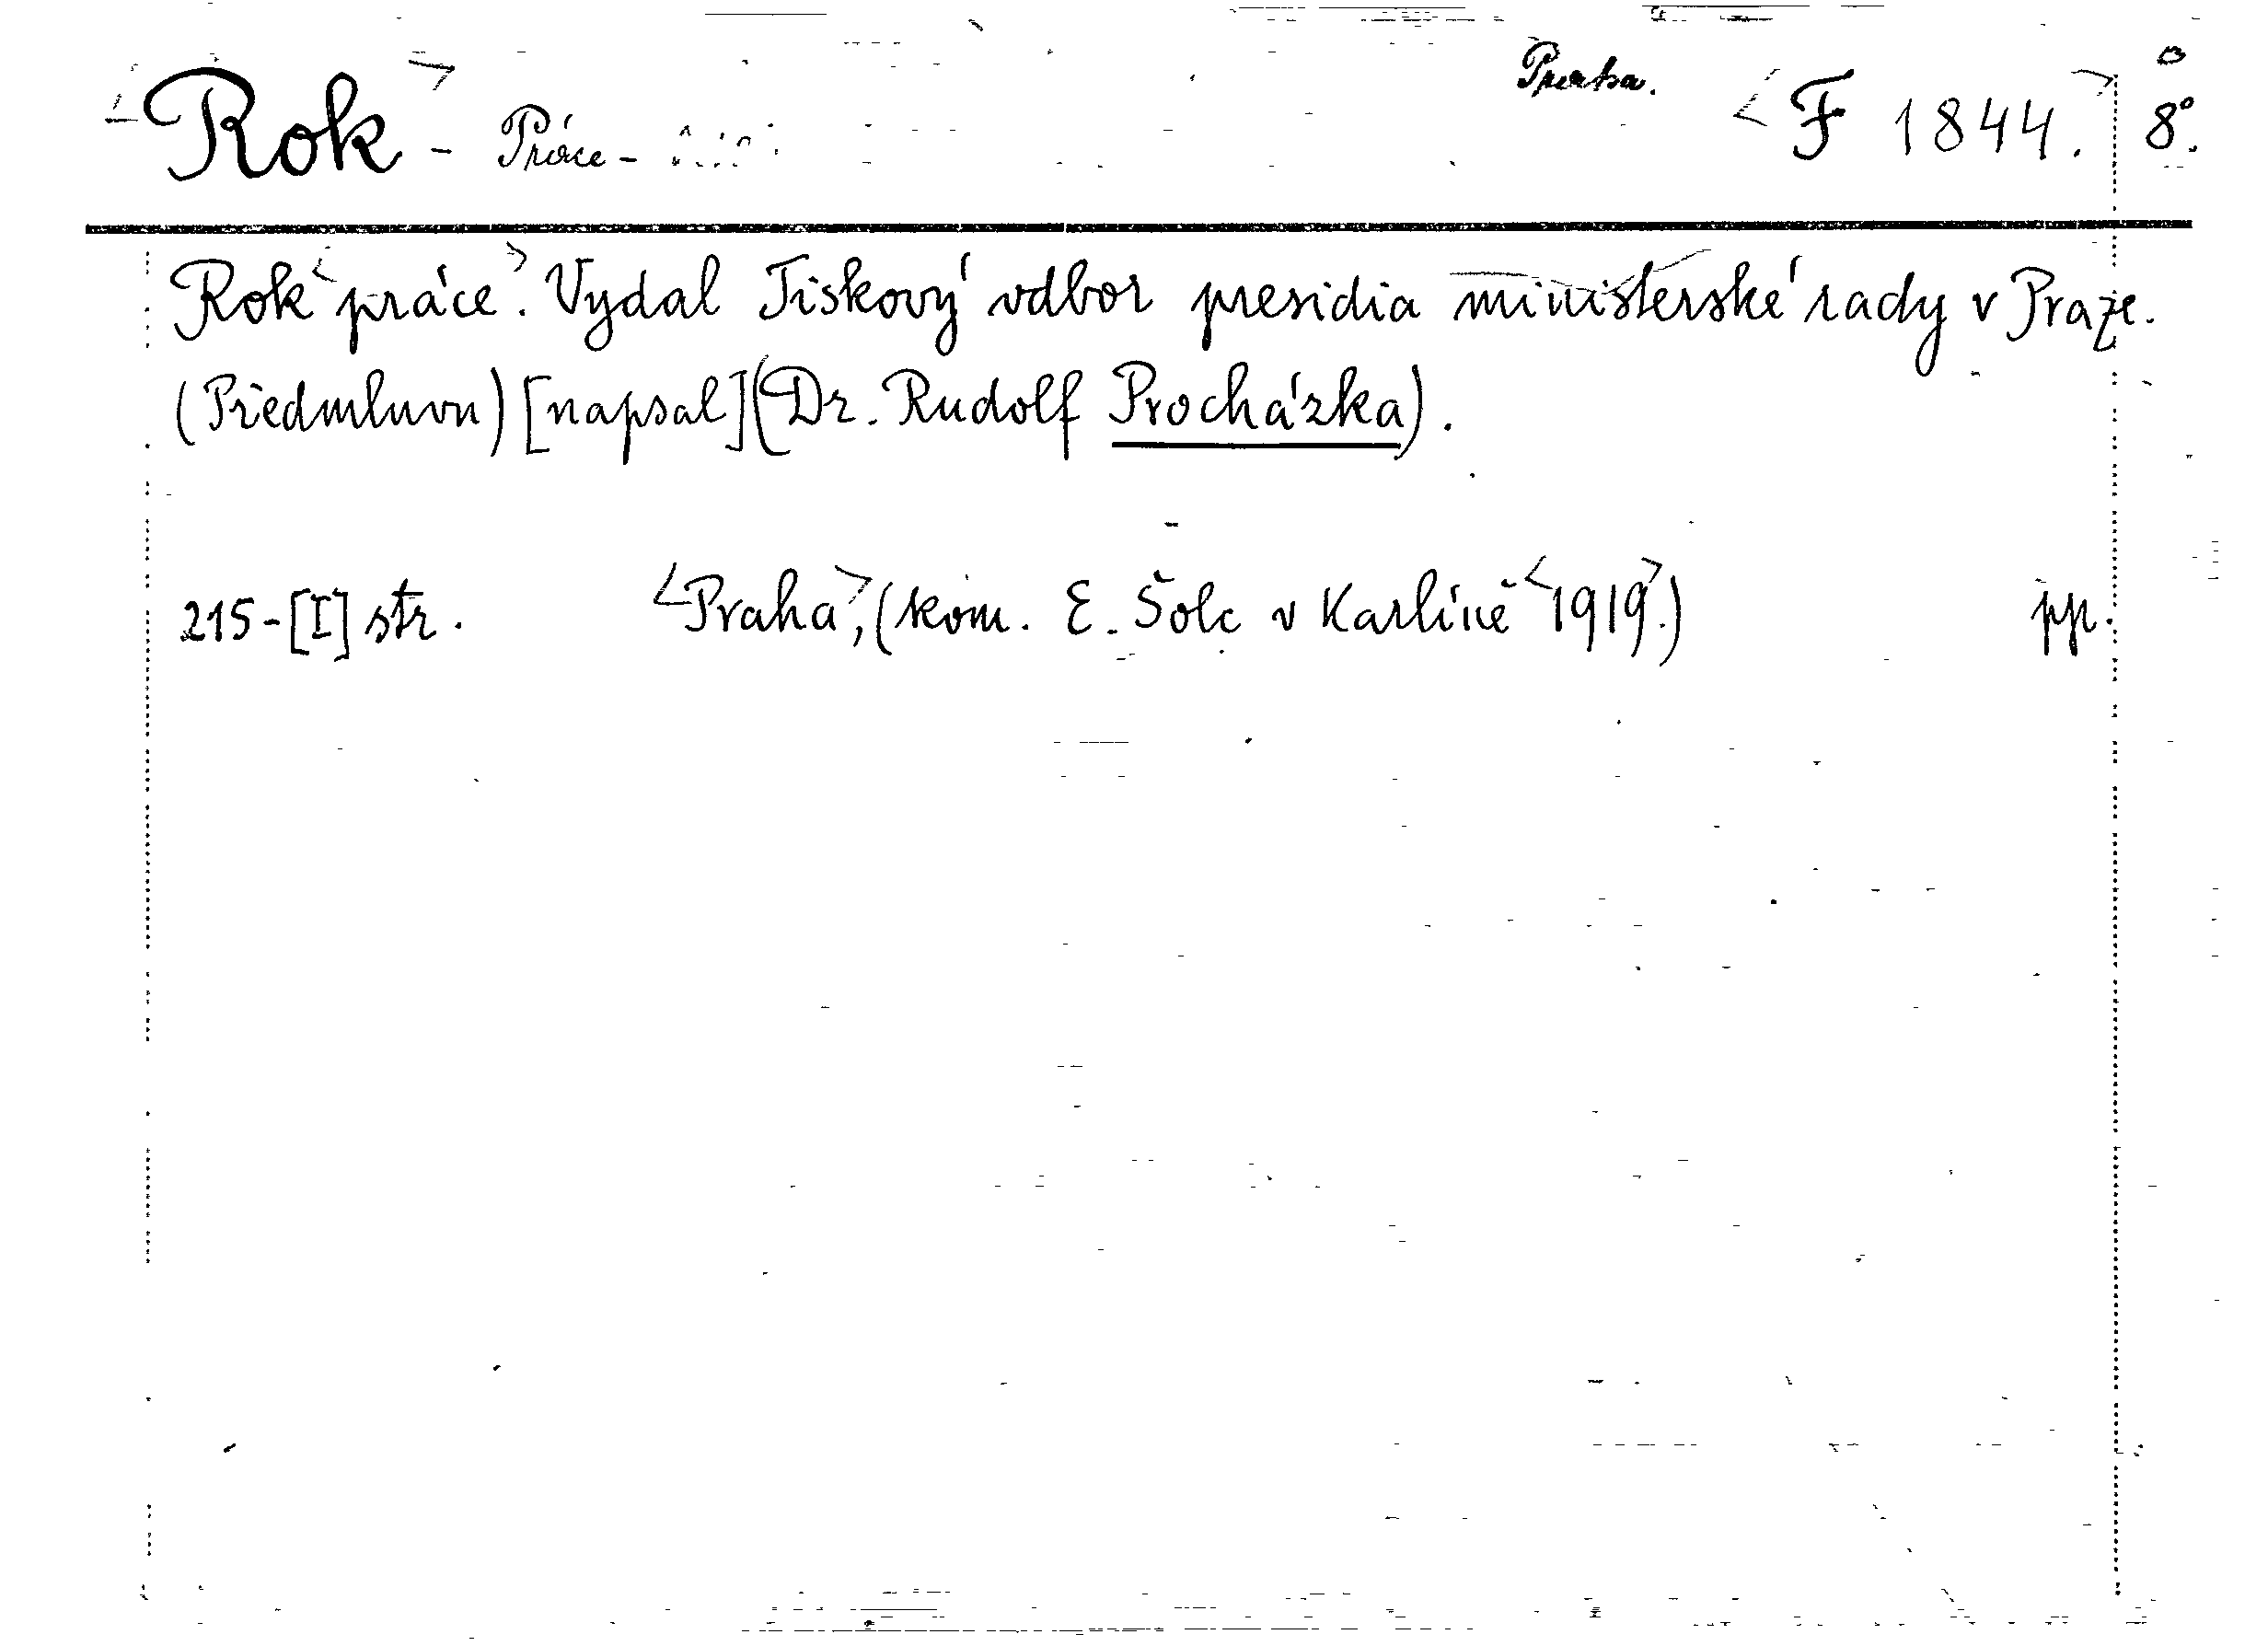 Praha.
<Rok> - Práce -
<F 1844.> 8°.
Rok <práce>. Vydal Tiskový odbor presidia ministerské rady v Praze.
(Předmluvu) [napsal] (Dr. Rudolf Procházka).
215-[I] str. <Praha>, (kom. E. Šolc v Karlíně <1919>.) ppr.